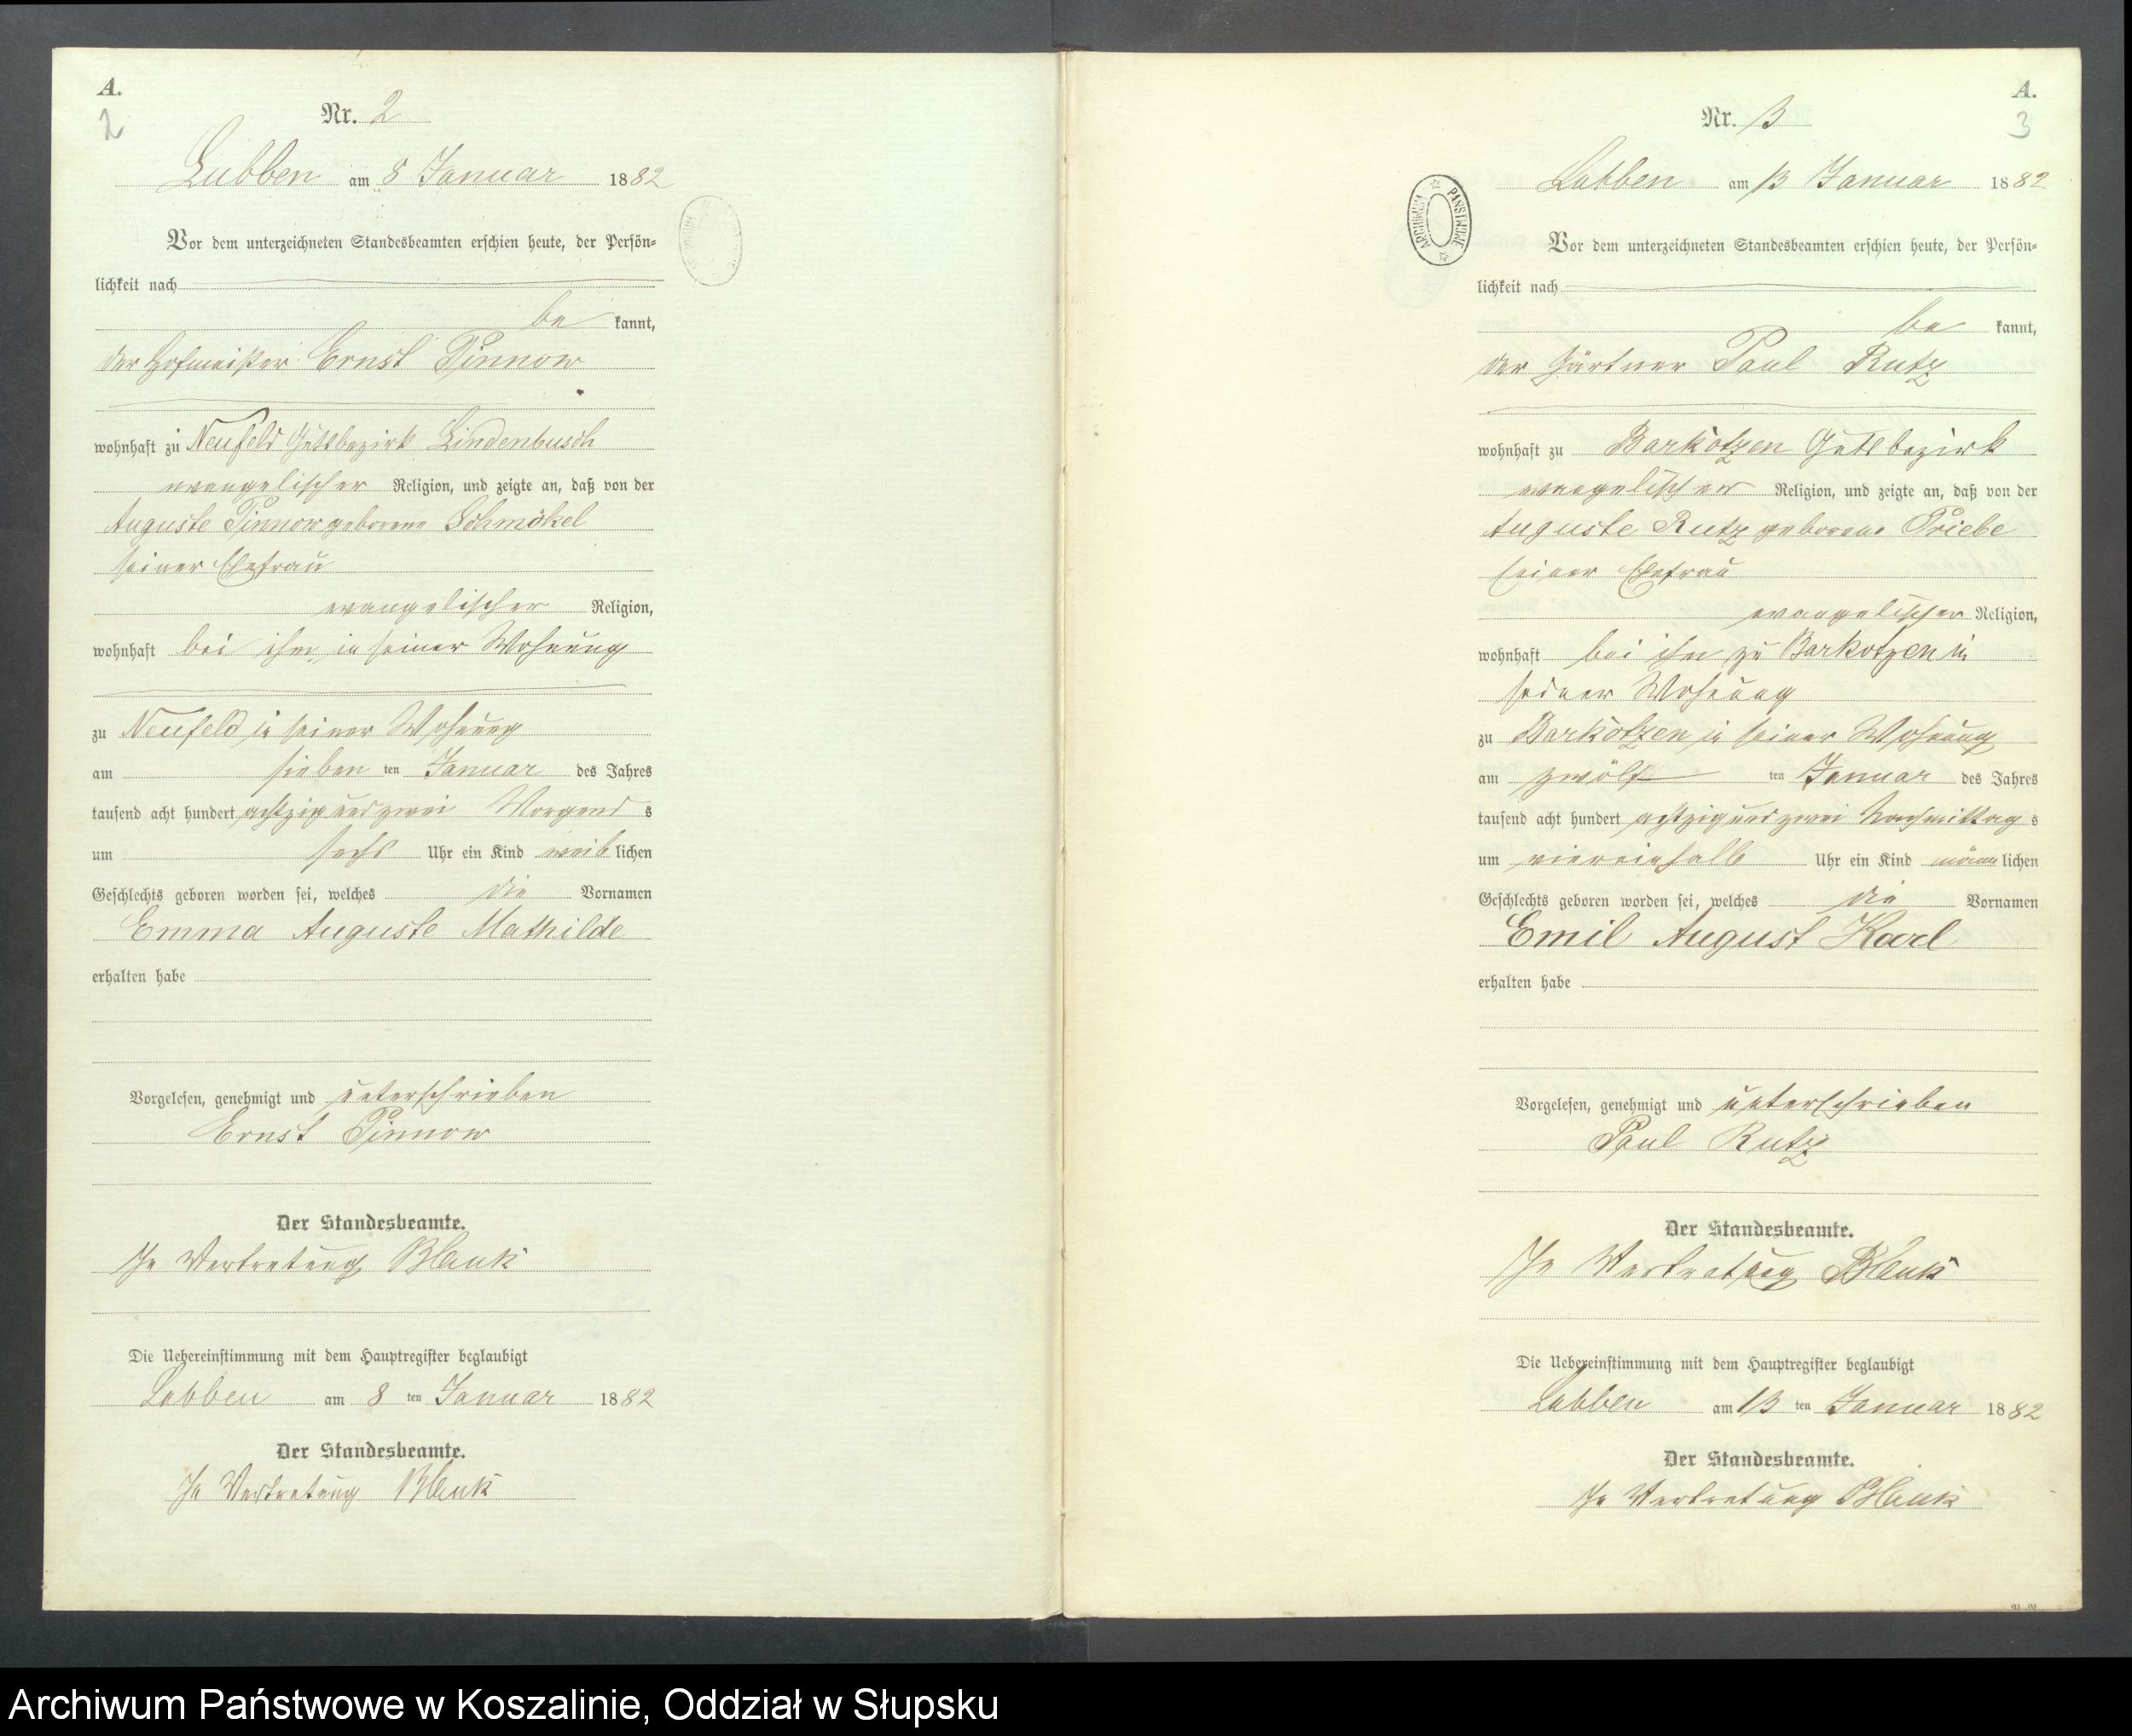 A.
2
Nr. 2
Lubben am 8 Januar 1882
Vor dem unterzeichneten Standesbeamten erschien heute, der Persön=
lichkeit nach
be kannt,
der Hofmeister Ernst Pinnow
wohnhaft zu Neufeld Gutsbezirk Lindenbusch
evangelischer Religion, und zeigte an, daß von der
Auguste Pinnow geborene Schmökel
seiner Ehefrau
evangelischer Religion,
wohnhaft bei ihm in seiner Wohnung
zu Neufeld in seiner Wohnung
am sieben ten Januar des Jahres
tausend acht hundert achtzig und zwei Morgend s
um sechs Uhr ein Kind weib lichen
Geschlechts geboren worden sei, welches die Vornamen
Emma Auguste Mathilde
erhalten habe
Vorgelesen, genehmigt und unterschrieben
Ernst Pinnow
Der Standesbeamte.
In Vertretung Blank
Die Uebereinstimmung mit dem Hauptregister beglaubigt
Lobben am 8 ten Januar 1882
Der Standesbeamte.
In Vertretung Blank
A.
3
Nr. 3
Lubben am 13 Januar 1882
ARCHIWUM PAŃSTWOWE
Vor dem unterzeichneten Standesbeamten erschien heute, der Persön=
lichkeit nach
be kannt,
der Gärtner Paul Rutz
wohnhaft zu Barkotzen Gutsbezirk
evangelischer Religion, und zeigte an, daß von der
Auguste Rutz geborene Priebe
seiner Ehefrau
evangelischer Religion,
wohnhaft bei ihm zu Barkotzen in
seiner Wohnung
zu Barkotzen in seiner Wohnung
am zwölf ten Januar des Jahres
tausend acht hundert achtzig und zwei Nachmittag s
um viereinhalb Uhr ein Kind männ lichen
Geschlechts geboren worden sei, welches die Vornamen
Emil August Karl
erhalten habe
Vorgelesen, genehmigt und unterschrieben
Paul Rutz
Der Standesbeamte.
In Vertretung Blank
Die Uebereinstimmung mit dem Hauptregister beglaubigt
Lubben am 13 ten Januar 1882
Der Standesbeamte.
In Vertretung Blank
Archiwum Państwowe w Koszalinie, Oddział w Słupsku